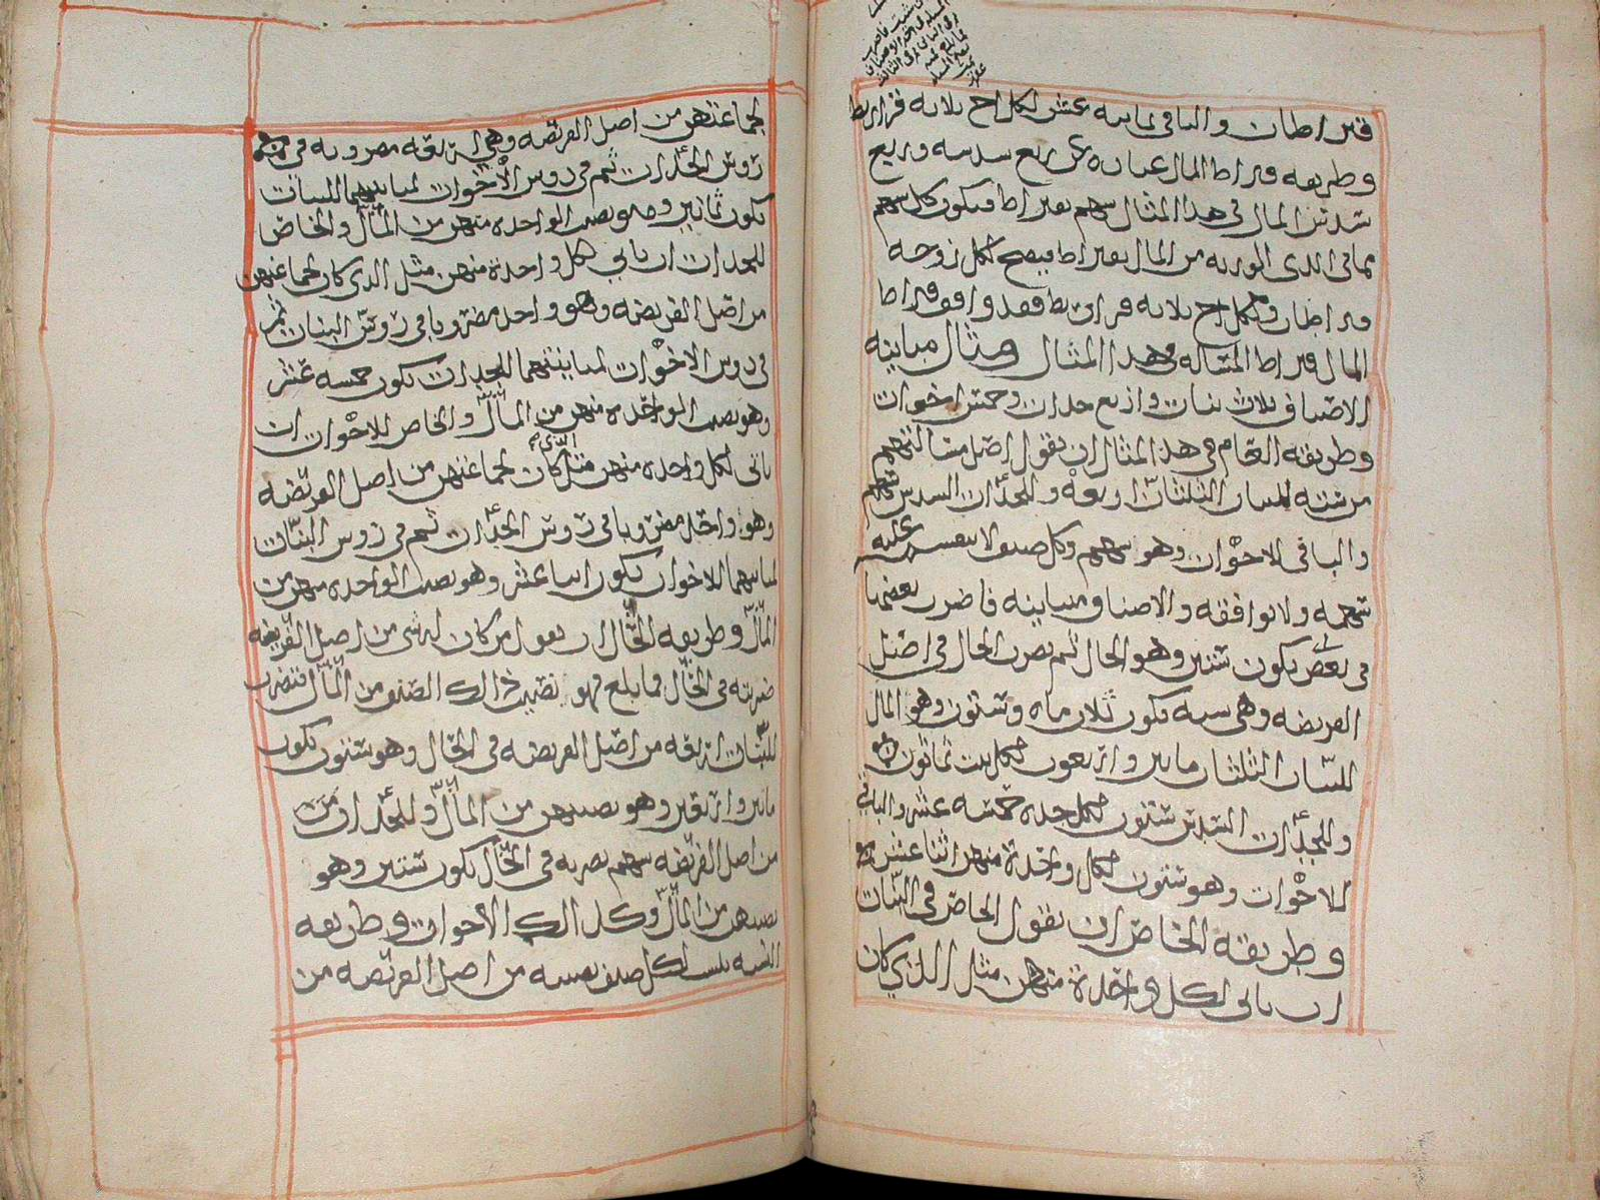 قيراطان والباقي ثمانيه عشر لكل اخ ثلاثه قراريط
وطريقه قيراط المال عباره عن ربع سدسه وربع
سدس المال في هذا المثال سهم بقيراط فيكون كل سهم
مما في ايدي الورثه من المال بقيراط فيصح لكل زوجه
قيراطان ولكل اخ ثلاثه قراريط فقد وافق قيراط
المال قيراط المسأله في هذا المثال ومثال مباينه
الاصناف ثلاث بنات واربع جدات وخمس اخوات
وطريقه العام في هذا المثال ان نقول اصل مسالتهم
من سته للبنات الثلثان اربعه وللجدات السدس سهم
والباقي للاخوات وهو سهم وكل صنف لا ينقسم عليه
سهمه ولا توافقه والاصناف متباينه فاضرب بعضها
في بعض يكون ستين وهو الحال ثم تضرب الحال في اصل
الفريضه وهي سته تكون ثلاث ماه وستون وهو المال
للبنات الثلثان ماتين واربعون لكل بنت ثمانون
وللجدات السدس ستون لكل جده خمسه عشر والباقي
للاخوات وهو ستون لكل واحدة منهن اثنا عشر
وطريقه الخاص ان نقول الخاص في البنات
ان ياتي لكل واحدة منهن مثل الذي كان
لجماعتهن من اصل الفريضه وهي اربعه مضروبه في
رؤس الجدات ثم في روس الاخوات لمباينتهما للبنات
يكون ثمانين وهو نصيب الواحده منهن من المال والخاص
للجدات ان ياتي لكل واحدة منهن مثل الذي كان لجماعتهن
من اصل الفريضه وهو واحد مضروبا في رؤس البنات ثم
في روس الاخوات لمباينتهما للجدات يكون خمسه عشر
وهو نصيب الواحده منهن من المال والخاص للاخوات ان
ياتي لكل واحده منهن مثل الذي كان لجماعتهن من اصل الفريضه
وهو واحد مضروبا في رؤس الجدات ثم في روس البنات
لمباينتهما للاخوات يكون اثنا عشر وهو نصيب الواحده منهن من
المال وطريقه الحال ان نقول من كان له شي من اصل الفريضه
ضربته في الحال فما بلغ فهو نصيب ذالك الصنف من المال فتضرب
للبنات اربعه من اصل الفريضه في الحال وهو ستون يكون
ماتين واربعين وهو نصيبهن من المال وللجدات من
من اصل الفريضه سهم تضربه في الحال يكون ستين وهو
نصيبهن من المال وكذالك الاخوات وطريقه
النسبه تنسب لكل صنف نصيبه من اصل الفريضه من